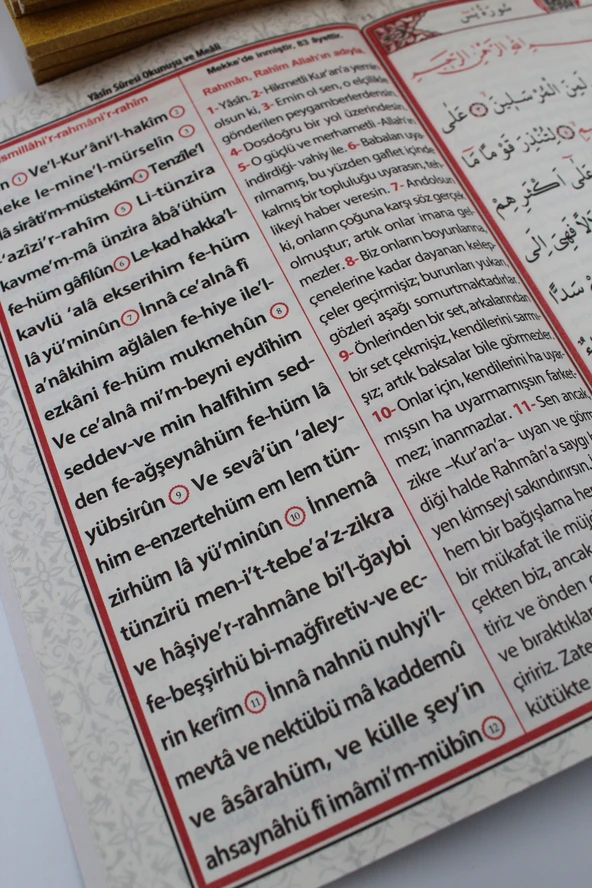 Yâsîn Sûresi Okunuşu ve Meâli
smillâhi'r-rahmâni'r-rahîm
n 1 Ve'l-Kur'âni'l-hakîm 2
neke le-mine'l-mürselîn 3
lâ sırâti'm-müstekîm 4 Tenzîle'l
'azîzi'r-rahîm 5 Li-tünzira
kavme'm-mâ ünzira âbâ'ühüm
fe-hüm gâfilûn 6 Le-kad hakka'l-
kavlü 'alâ ekserihim fe-hüm
lâ yü'minûn 7 İnnâ ce'alnâ fî
a'nâkihim ağlâlen fe-hiye ile'l-
ezkâni fe-hüm mukmehûn 8
Ve ce'alnâ mi'm-beyni eydîhim
seddev-ve min halfihim sed-
den fe-ağşeynâhüm fe-hüm lâ
yübsirûn 9 Ve sevâ'ün 'aley-
him e-enzertehüm em lem tün-
zirhüm lâ yü'minûn 10 İnnemâ
tünzirü men-i't-tebe'a'z-zikra
ve hâşiye'r-rahmâne bi'l-ğaybi
fe-beşşirhü bi-mağfiretiv-ve ec-
rin kerîm 11 İnnâ nahnü nuhyi'l-
mevtâ ve nektübü mâ kaddemû
ve âsârahüm, ve külle şey'in
ahsaynâhü fî imâmi'm-mübîn 12
Mekke'de inmiştir, 83 âyettir.
Rahmân, Rahim Allah'ın adıyla.
1- Yâsin. 2- Hikmetli Kur'an'a yemin
olsun ki, 3- Emin ol sen, o elçilikle
gönderilen peygamberlerdensin.
4- Dosdoğru bir yol üzerindesin.
5- O güçlü ve merhametli -Allah'ın
indirdiği- vahiy ile. 6- Babaları uya-
rılmamış, bu yüzden gaflet içinde
kalmış bir topluluğu uyarasın, teh-
likeyi haber veresin. 7- Andolsun
ki, onların çoğuna karşı söz gerçek
olmuştur; artık onlar imana gel-
mezler. 8- Biz onların boyunlarına,
çenelerine kadar dayanan kelep-
çeler geçirmişiz; burunları yukarı,
gözleri aşağı somurtmaktadırlar.
9- Önlerinden bir set, arkalarından
bir set çekmişiz, kendilerini sarmı-
şız; artık baksalar bile görmezler.
10- Onlar için, kendilerini ha uyar-
mışsın ha uyarmamışsın farket-
mez; inanmazlar. 11- Sen ancak
zikre –Kur'an'a– uyan ve görm
diği halde Rahmân'a saygı
yen kimseyi sakındırırsın.
hem bir bağışlama he
bir mükafat ile müj
çekten biz, ancak
tiriz ve önden
ve bıraktıklar
çiririz. Zate
kütükte
سُورَةُ يٰسٓ
بِسْمِ اللّٰهِ الرَّحْمٰنِ الرَّحِيمِ
لَمِنَ الْمُرْسَلِينَ ٣ عَلٰى
لِتُنْذِرَ قَوْمًا مَٓا
عَلٰٓى اَكْثَرِهِمْ
فَهِيَ اِلَى
سَدًّا